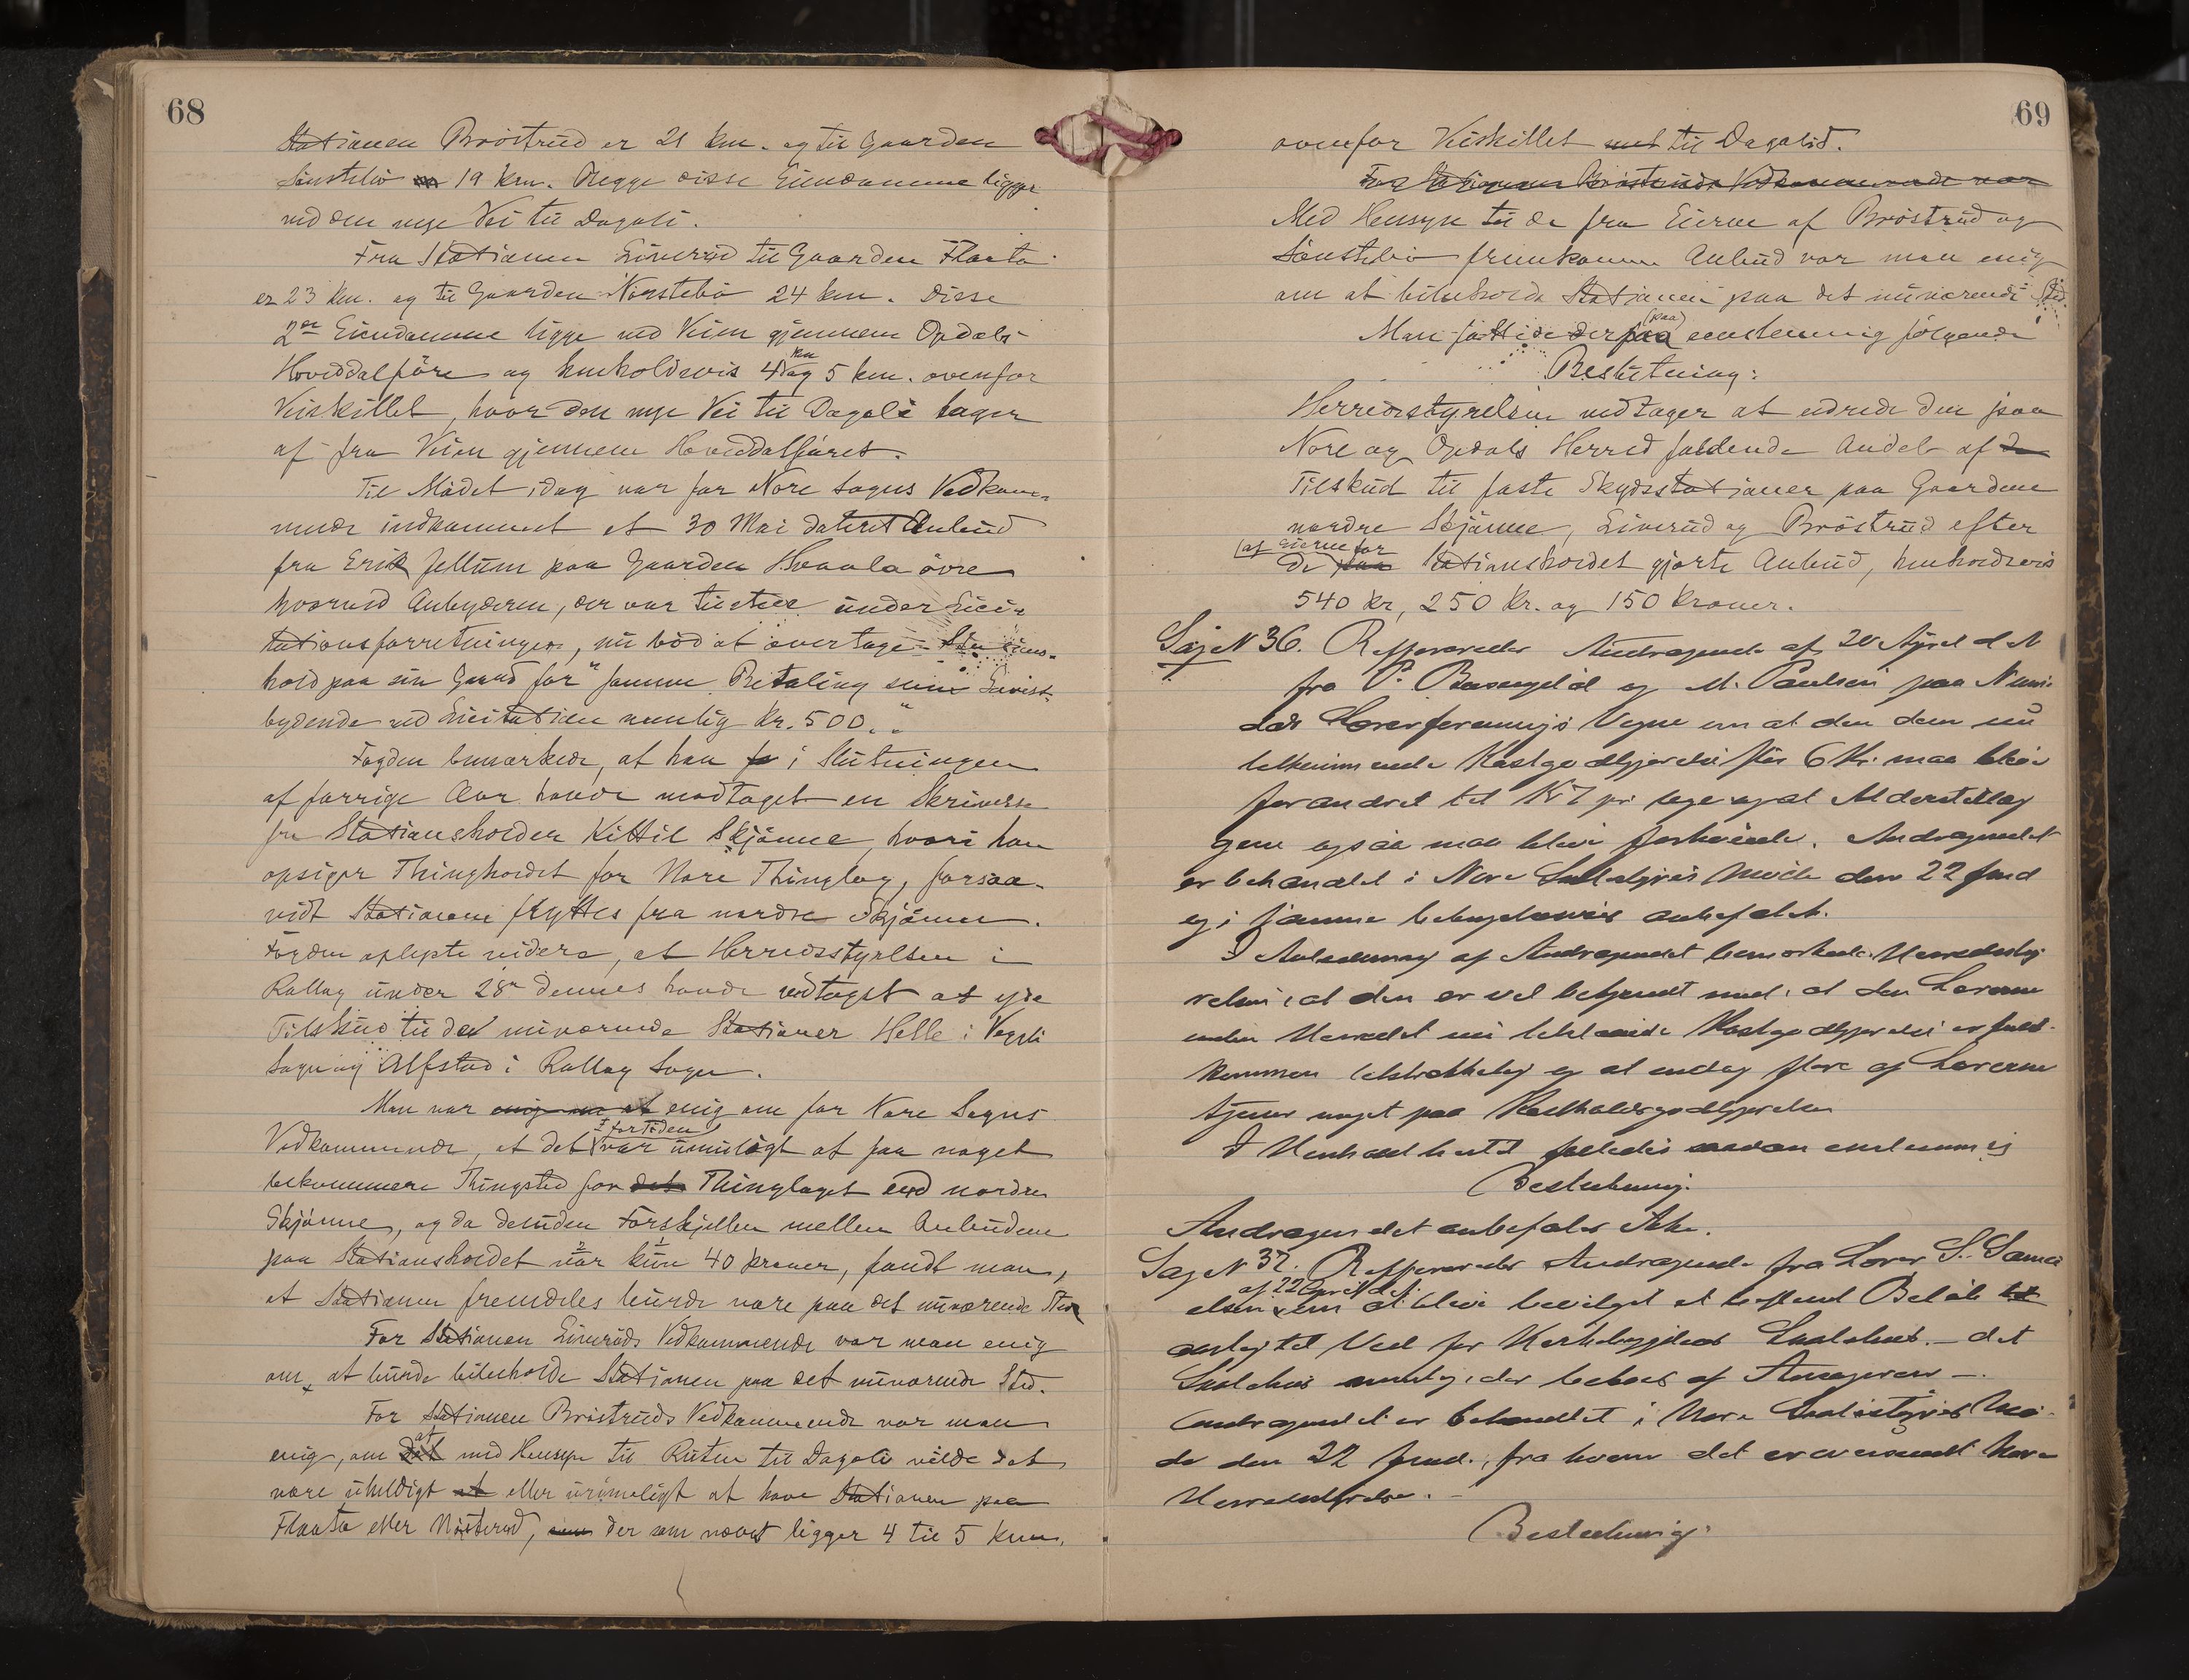 68
Stationen Bröstrud er 21 km. og til Gaarden
Sönstebö 19 km. Begge disse Eiendomme ligger
ved den nye Vei til Dagali.
Fra Stationen Liverud til Gaarden Flaata
er 23 km. og til Gaarden Nörstebö 24 km. Disse
2de Eiendomme ligge ved Veien gjennem Opdals
Hoveddalföre og henholdsvis 4 km og 5 km. ovenfor
Veiskillet, hvor den nye Vei til Dagali tager
af fra Veien gjennem Hoveddalföret.
Til Mödet idag var for Nore Sogns Vedkom-
mende indkommet et 30 Mai dateret Anbud
fra Erik Jellum paa Gaarden Hvaala övre
hvorved Anbyderen, der var tilstede under Lici-
tationsforretningen, nu böd at overtage Stations-
hold paa sin Gaard for "samme Betaling som Lavest-
bydende ved Licitationen nemlig Kr. 500."
Fogden bemærkede, at han i Slutningen
af forrige Aar havde modtaget en Skrivelse
fra Stationsholder Kittil Skjönne, hvori han
opsiger Thingholdet for Nore Thinglag, forsaa-
vidt Stationen flyttes fra nordre Skjönne.
Fogden oplyste videre, at Herredsstyrelsen i
Rollag under 28de dennes havde vedtaget at yde
Tilskud til de nuværende Stationer Helle i Vegli
Sogn og Alfstad i Rollag Sogn.
Man var enig om at enig om for Nore Sogns
Vedkommende, at det for Tiden var umuligt at faa noget
bekvemmere Thingsted for det Thinglaget end nordre
Skjönne, og da desuden Forskjellen mellem Anbudene
paa Stationsholdet var kun 40 kroner, fandt man,
at Stationen fremdeles burde være paa det nuværende Sted
For Stationen Liveruds Vedkommende var man enig
om, at burde bibeholde Stationen paa det nuværende Sted.
For Stationen Bröstruds Vedkommende var man
enig, om at det med Hensyn til Ruten til Dagali vilde det
være uheldigt at eller urimeligt at have Stationen paa
Flaata eller Nörstebö, der som nævnt ligger 4 til 5 km.
69
ovenfor Veiskillet til Dagalid.
For Stationen Bröstruds Vedkommende var
Med Hensyn til de fra Eierne af Bröstrud og
Sönstebö fremkomne Anbud var man enig
om at bibeholde Stationen paa det nuværende Sted.
Man fattede derpaa (paa) eenstemmig fölgende
Beslutning:
Herredsstyrelsen vedtager at udrede den paa
Nore og Opdals Herred faldende Andel af de
Tilskud til faste Skydsstationer paa Gaardene
nordre Skjönne, Liverud og Bröstrud efter
(af Eierne for
de paa Stationsholdet gjorte Anbud, henholdsvis
540 Kr, 250 Kr. og 150 Kroner.
Sag N 36. Refereredes Andragende af 20 April d.A.
fra P. og M. Paulsen paa Numme-
dals Lærerforenings Vegne om at den dem nu
tilkommende Kostgodtgjörelse for 6 Kr. maa blive
forandret til Kr 7 pr uge og at Alderstillæg
gene ogsaa maa blive forhöiede. Andragendet
er behandlet i Nore Skolestyres Möde den 22 Juni
og i samme betingelsesvis anbefalet.
I Anledning af Andragendet bemærkede Herredssty
relsen, at den er vel bekjendt med, at den Lærerne
inden Herredet nu tilstaaede Kostgodtgjörelse er fuld-
kommen tilstrækkelig og at endog flere af Lærerne
tjener noget paa Kostholdsgodtgjörelsen
I Henhold hertil fattedes saadan enstemmig
Beslutning.
Andragendet anbefales ikke.
Sag N 37. Refereredes Andragende fra Lærer S.
af 22 April d.A.
om at blive bevilget et bestemt Belöb til
aarlig til Ved for Kirkebygdens Skolehus - det
Skolehus nemlig, der beboes af Ansögeren -.
Andragendet er behandlet i Nore Skolestyres Mö-
de den 22 Juni, fra hvem det er oversendt Nore
Herredsstyrelse. -
Beslutning: